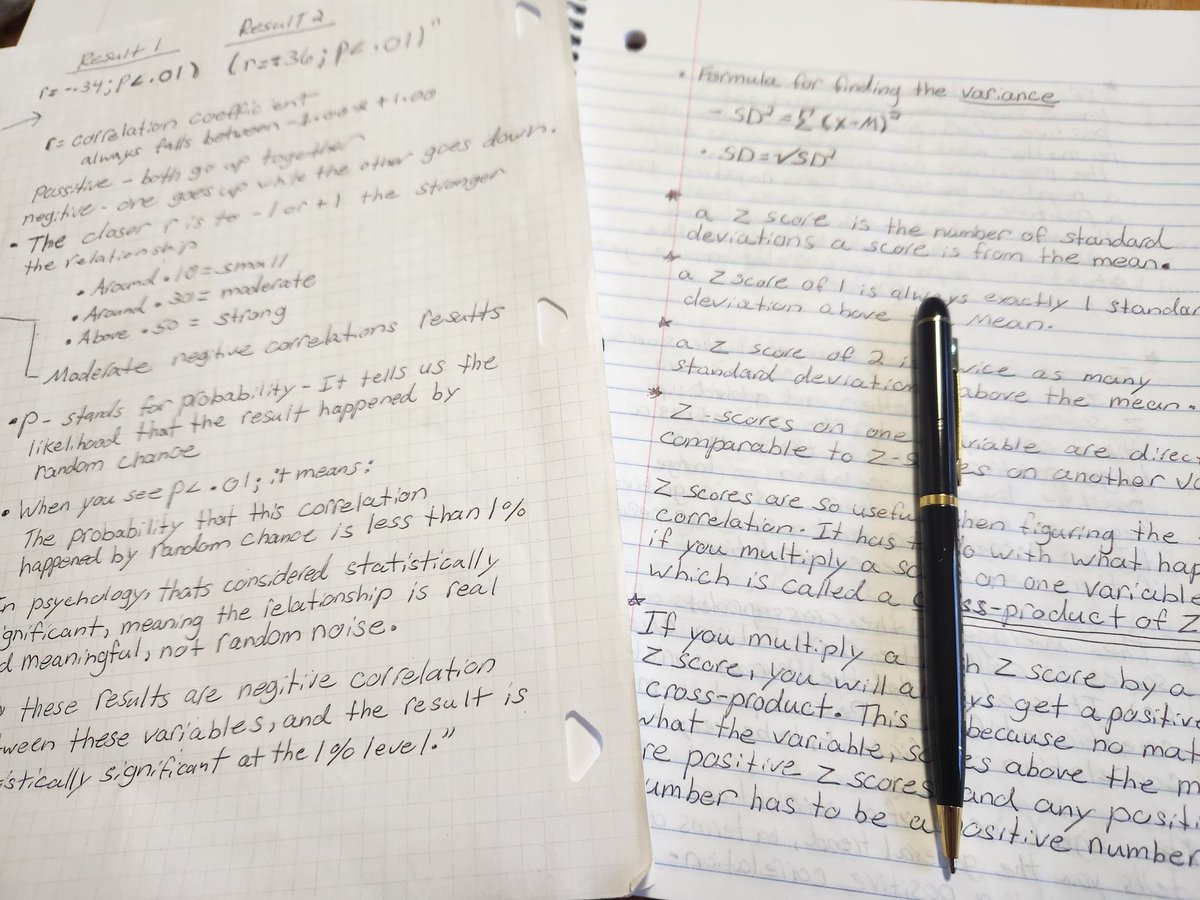 Result 1 Result 2
r=-.34; P<.01) (r=-.36; P<.01)"
r= correlation coefficient
always falls between -1.00 & +1.00
possitive - both go up together
negitive - one goes up while the other goes down.
• The closer r is to -1 or +1 the stronger
the relationship
• Around .10 = small
• Around .30 = moderate
• Above .50 = strong
Moderate negitive correlations results
• P - stands for probability - It tells us the
likelihood that the result happened by
random chance
• When you see P<.01; it means:
The probability that this correlation
happened by random chance is less than 1%
In psychology, thats considered statistically
gnificant, meaning the relationship is real
d meaningful, not random noise.
these results are negitive correlation
tween these variables, and the result is
istically significant at the 1% level."
• Formula for finding the variance
- SD² = Σ(X-M)²
• SD=√SD²
* a Z score is the number of standard
deviations a score is from the mean.
* a Z score of 1 is always exactly 1 standar
deviation above mean.
* a Z score of 2 i wice as many
standard deviation above the mean.
* Z-scores on one riable are direct
comparable to Z-s es on another va
Z scores are so usefu hen figuring the
correlation. It has t o with what hap
if you multiply a sc on one variable
which is called a c ss-product of Z
* If you multiply a h Z score by a
Z score, you will a ys get a positive
cross-product. This because no mat
what the variable, sc es above the m
re positive Z scores and any positi
umber has to be a positive number